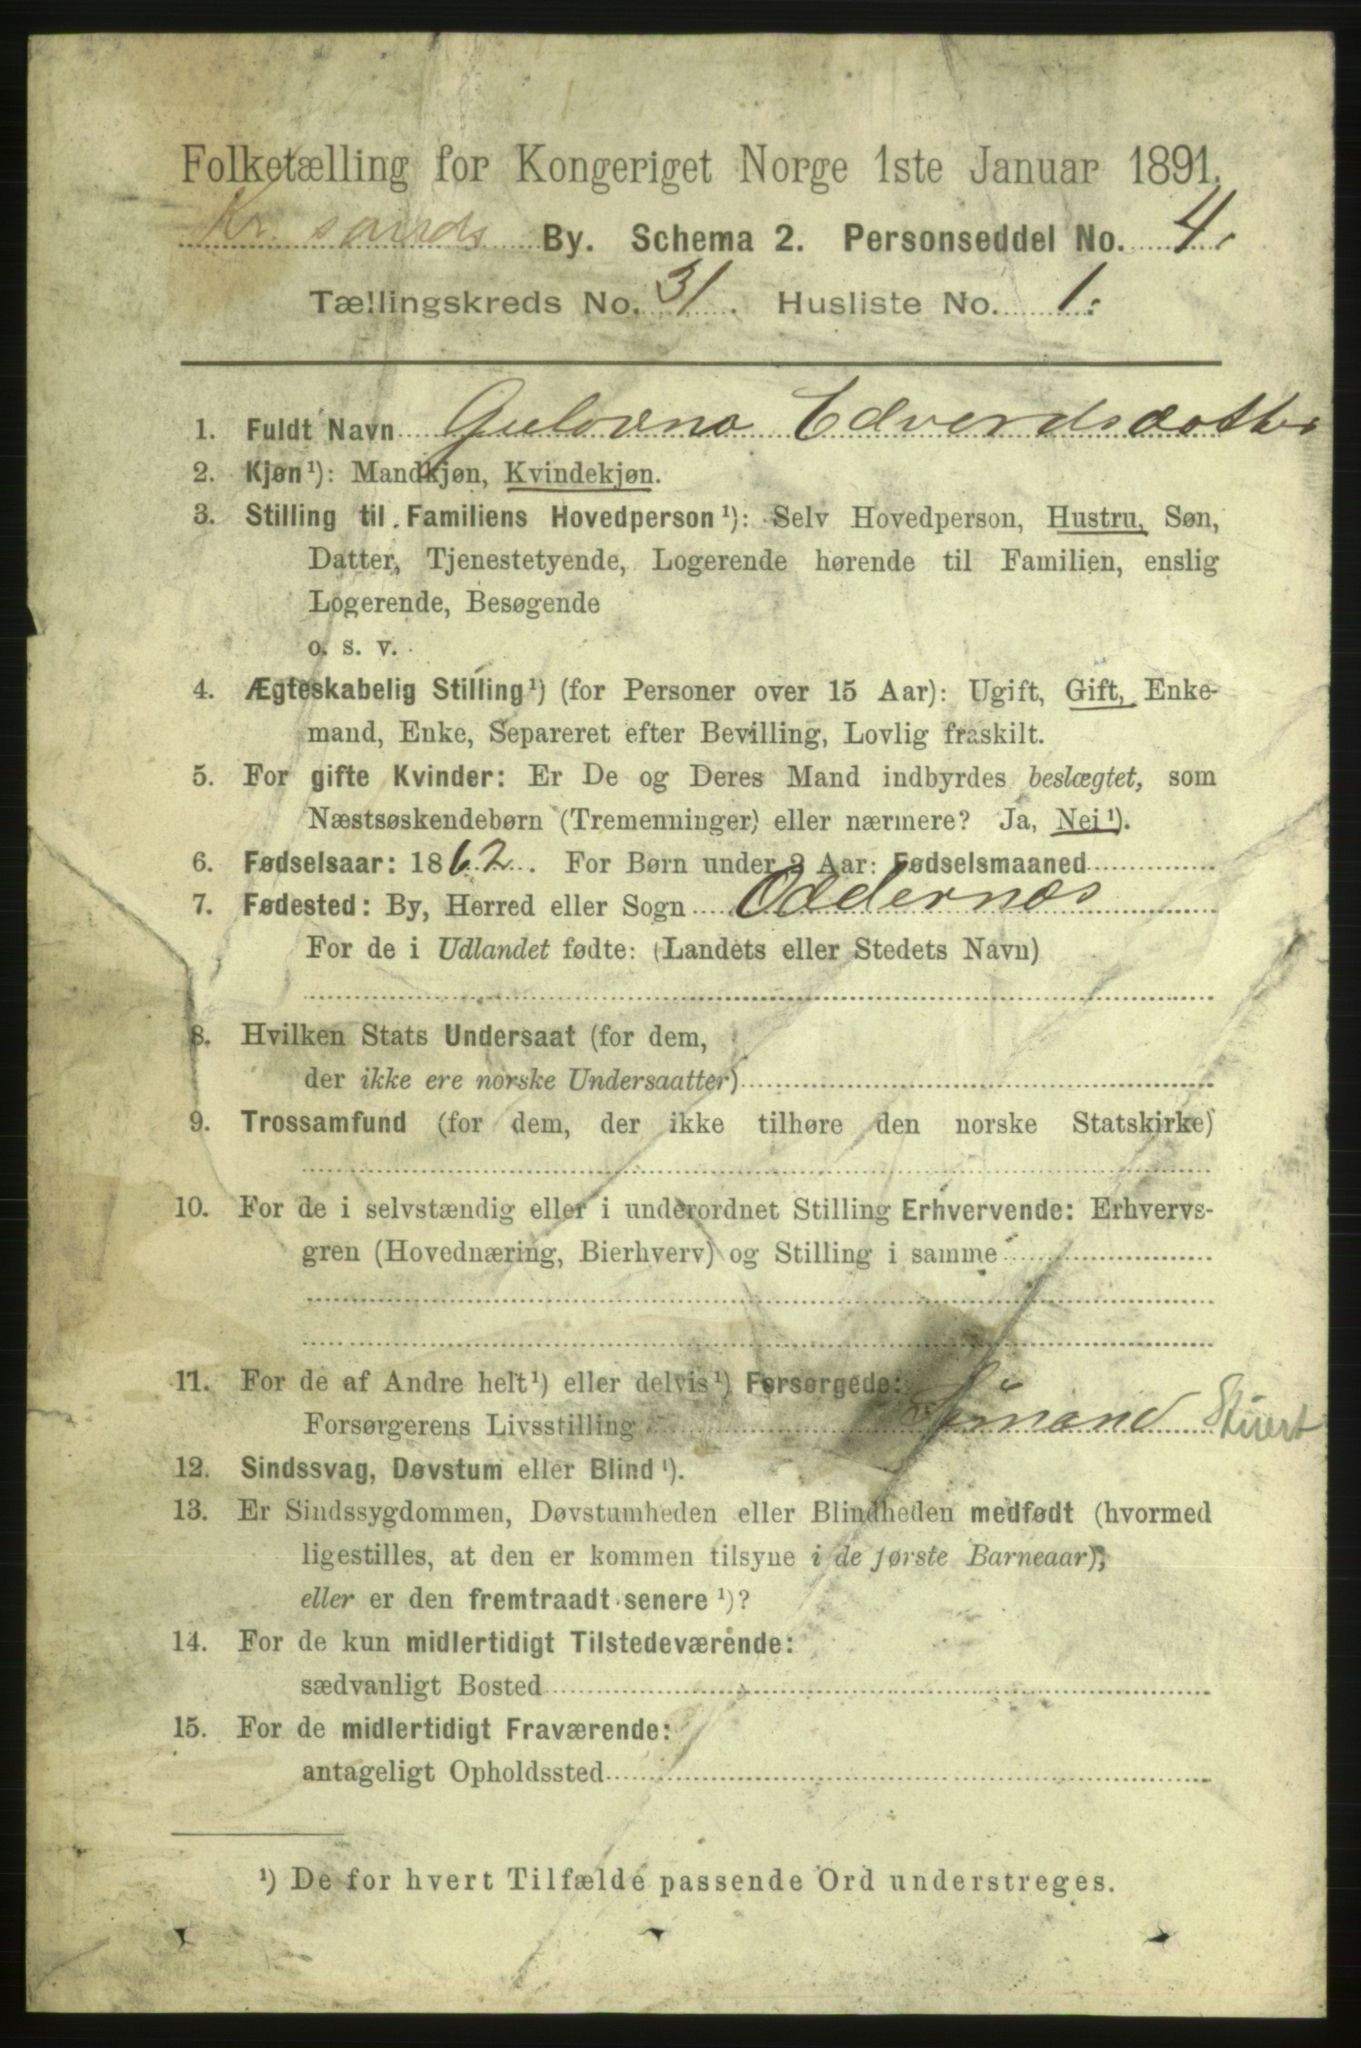 Folketælling for Kongeriget Norge 1ste Januar 1891.
Kr. sands By. Schema 2. Personseddel No. 4.
Tællingskreds No. 31. Husliste No. 1.
1. Fuldt Navn Gulovna Edverdsdotter
2. Kjøn¹): Mandkjøn, Kvindekjøn.
3. Stilling til Familiens Hovedperson¹): Selv Hovedperson, Hustru, Søn,
Datter, Tjenestetyende, Logerende hørende til Familien, enslig
Logerende, Besøgende
o. s. v.
4. Ægteskabelig Stilling¹) (for Personer over 15 Aar): Ugift, Gift, Enke-
mand, Enke, Separeret efter Bevilling, Lovlig fraskilt.
5. For gifte Kvinder: Er De og Deres Mand indbyrdes beslægtet, som
Næstsøskendebørn (Tremenninger) eller nærmere? Ja, Nei¹).
6. Fødselsaar: 1862. For Børn under 2 Aar: Fødselsmaaned
7. Fødested: By, Herred eller Sogn Oddernæs
For de i Udlandet fødte: (Landets eller Stedets Navn)
8. Hvilken Stats Undersaat (for dem,
der ikke ere norske Undersaatter)
9. Trossamfund (for dem, der ikke tilhøre den norske Statskirke)
10. For de i selvstændig eller i underordnet Stilling Erhvervende: Erhvervs-
gren (Hovednæring, Bierhverv) og Stilling i samme
11. For de af Andre helt¹) eller delvis¹) Forsørgede:
Forsørgerens Livsstilling Sømand
12. Sindssvag, Døvstum eller Blind¹).
13. Er Sindssygdommen, Døvstumheden eller Blindheden medfødt (hvormed
ligestilles, at den er kommen tilsyne i de første Barneaar),
eller er den fremtraadt senere¹)?
14. For de kun midlertidigt Tilstedeværende:
sædvanligt Bosted
15. For de midlertidigt Fraværende:
antageligt Opholdssted
¹) De for hvert Tilfælde passende Ord understreges.